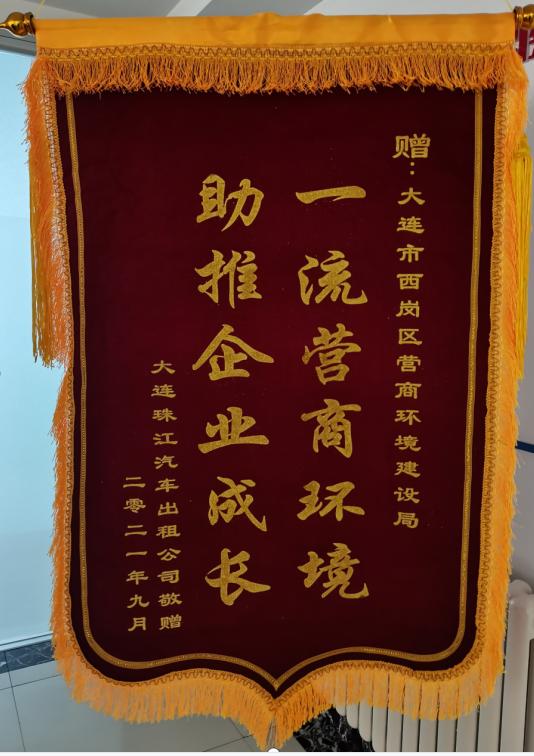 赠：大连市西岗区营商环境建设局
一流营商环境
助推企业成长
大连珠江汽车出租公司敬赠
二零二一年九月